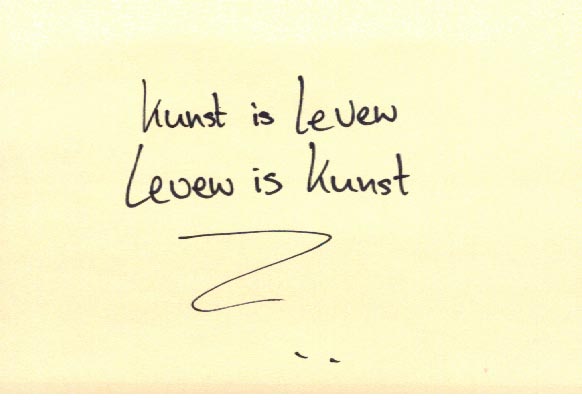 Kunst is Leven
Leven is Kunst